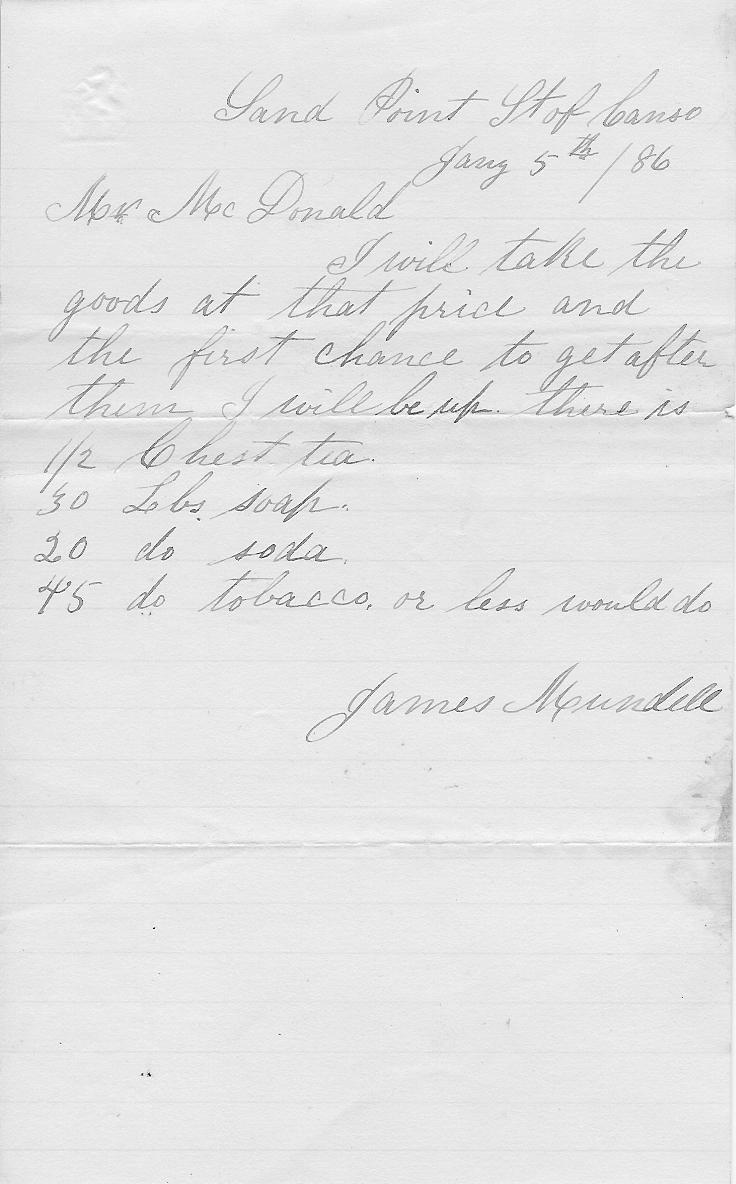 Sand Point St of Canso
Jany 5th / 86
Mr McDonald
I will take the
goods at that price and
the first chance to get after
them I will be up. there is
1/2 Chest tea.
30 Lbs. soap.
20 do soda.
45 do tobacco. or less would do
James Mundell